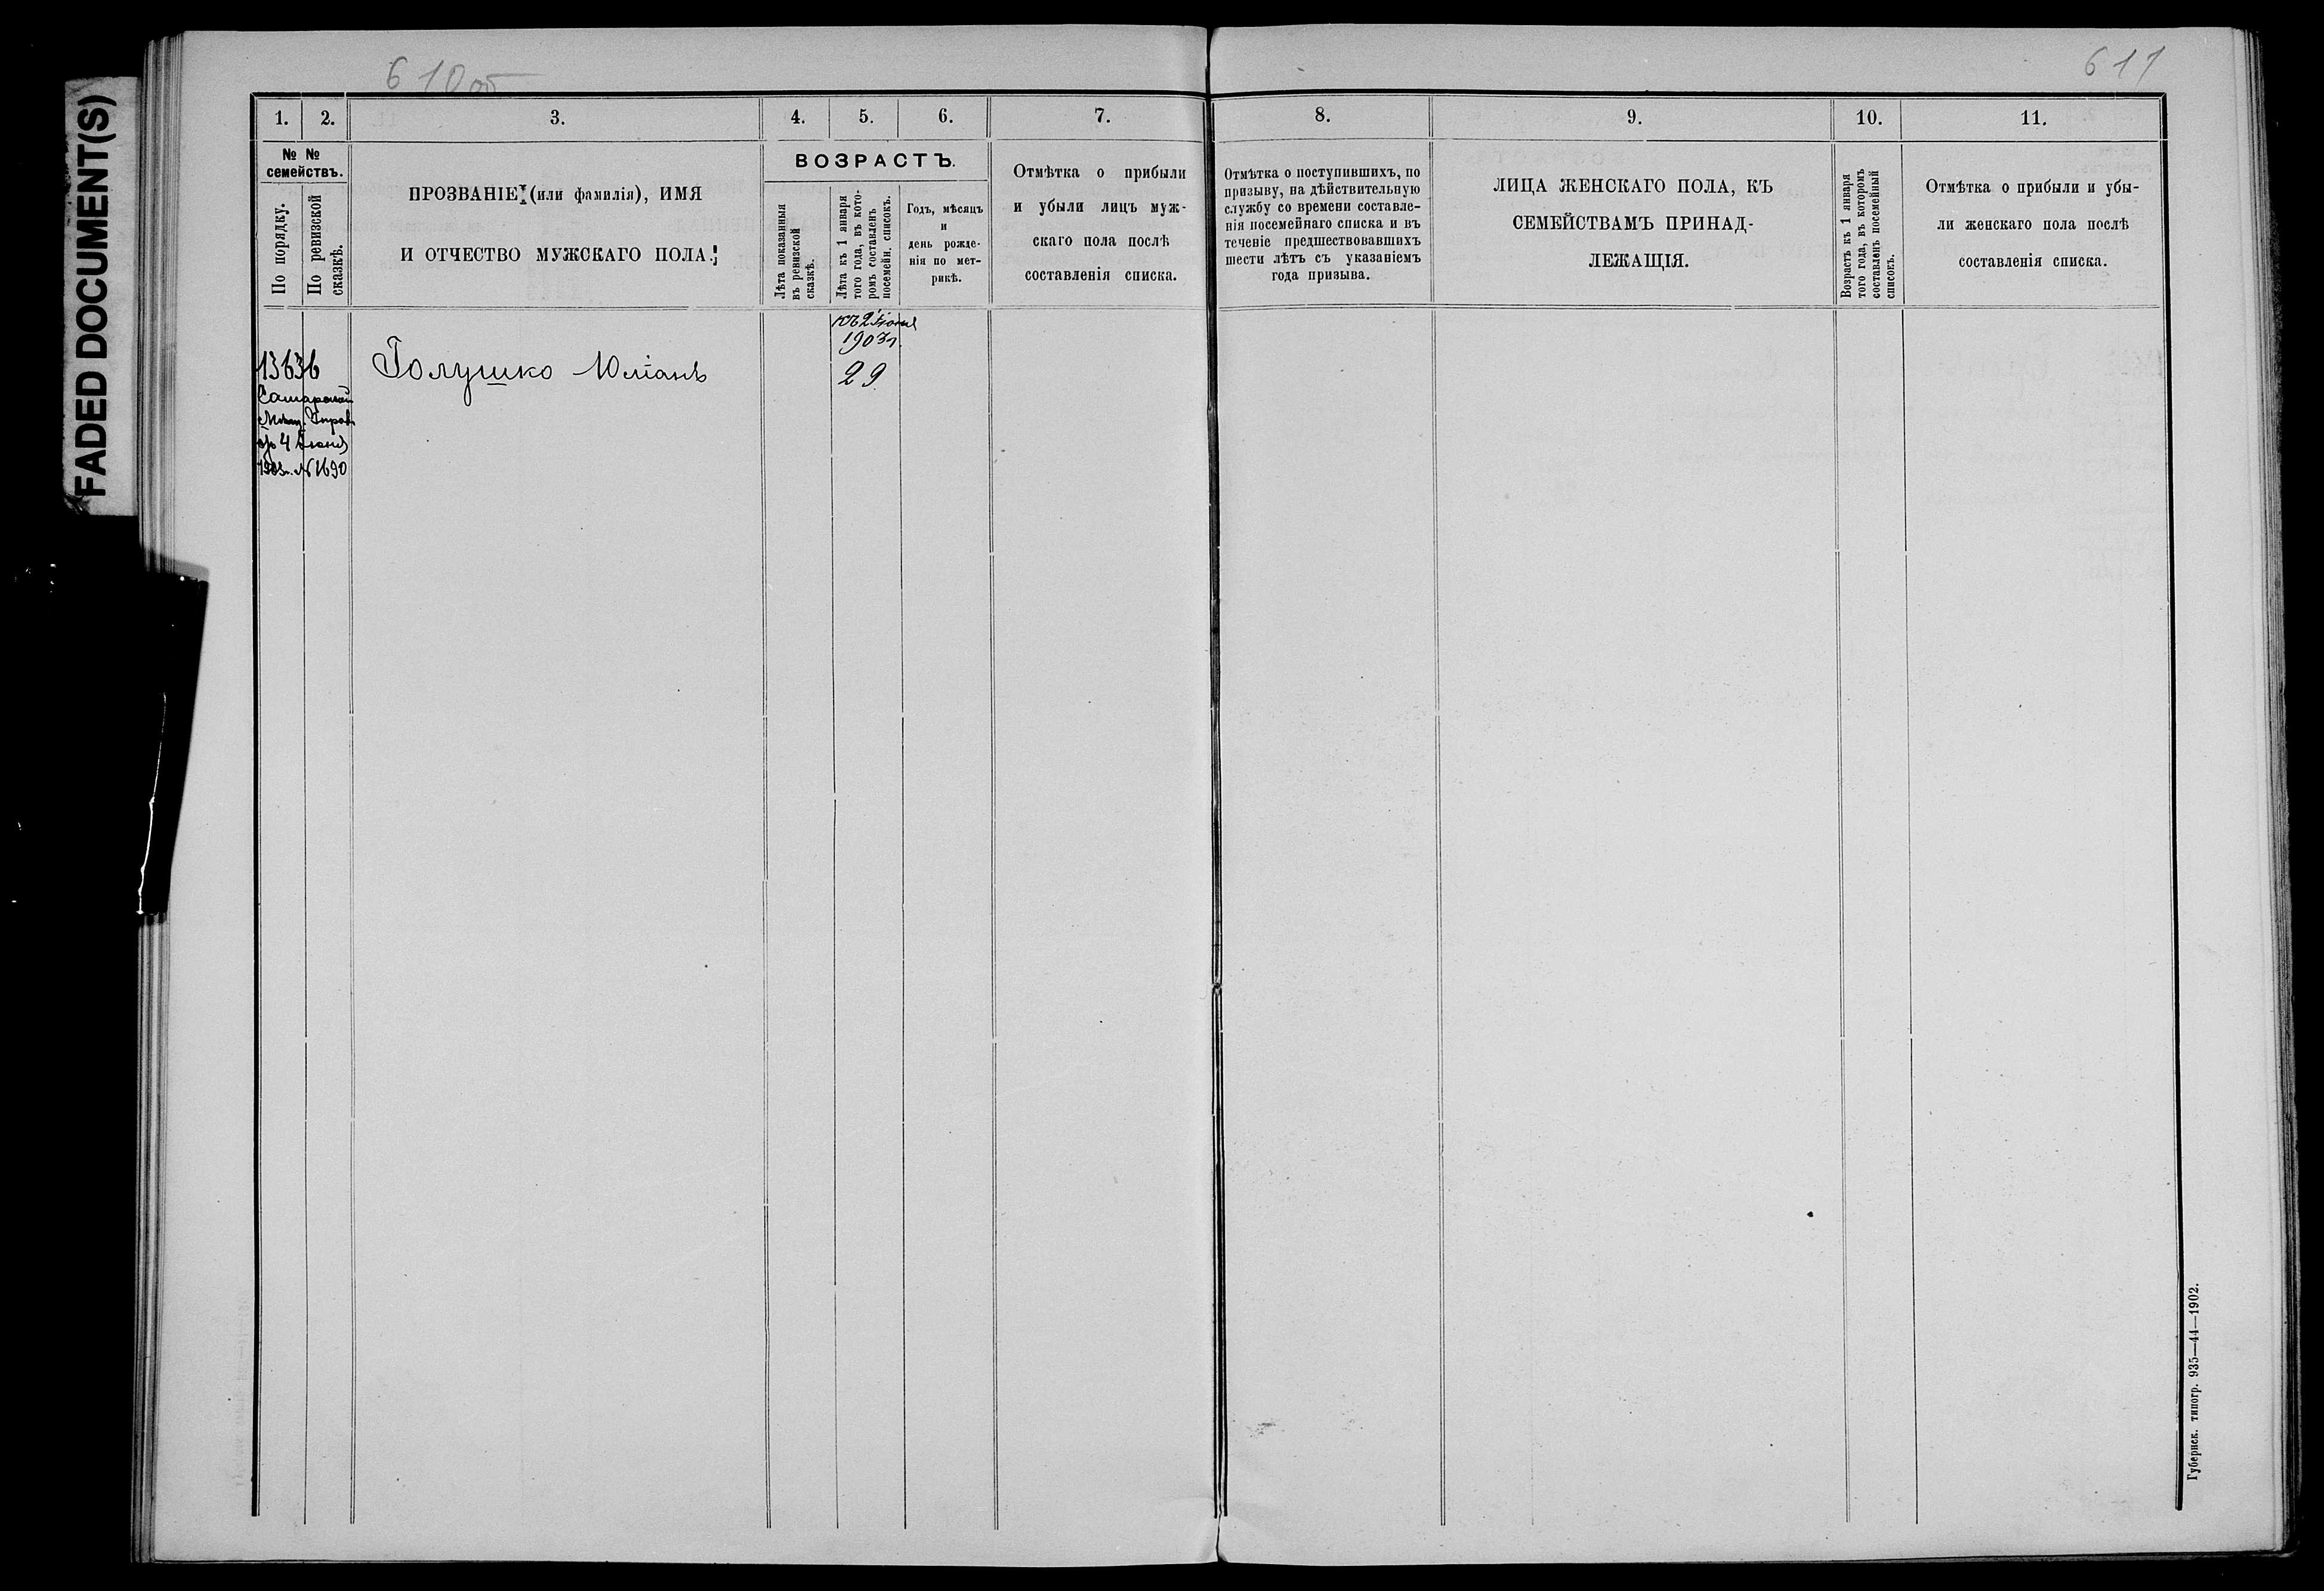 FADED DOCUMENT(S)
610об
611
1. 2. 3. 4. 5. 6. 7. 8. 9. 10. 11.
№ №
семействъ.
По порядку.
По ревизской
сказкѣ.
ПРОЗВАНІЕ (или фамилія), ИМЯ
И ОТЧЕСТВО МУЖСКАГО ПОЛА.
ВОЗРАСТЪ.
Лѣта показанныя
въ ревизской
сказкѣ.
Лѣта къ 1 января
того года, въ кото-
ромъ составленъ
посемейн. списокъ.
Годъ, мѣсяцъ
и
день рожде-
нія по мет-
рикѣ.
Отмѣтка о прибыли
и убыли лицъ муж-
скаго пола послѣ
составленія списка.
Отмѣтка о поступившихъ, по
призыву, на дѣйствительную
службу со времени составле-
нія посемейнаго списка и въ
теченіе предшествовавшихъ
шести лѣтъ съ указаніемъ
года призыва.
ЛИЦА ЖЕНСКАГО ПОЛА, КЪ
СЕМЕЙСТВАМЪ ПРИНАД-
ЛЕЖАЩІЯ.
Возрастъ къ 1 января
того года, въ которомъ
составленъ посемейный
списокъ.
Отмѣтка о прибыли и убы-
ли женскаго пола послѣ
составленія списка.
13636
Голушко Юліанъ
къ 2 Іюня
1903 г.
29
Мѣщ. Управ.
4 Іюня
1903 г. № 1690
Губернск. типогр. 935—44—1902.